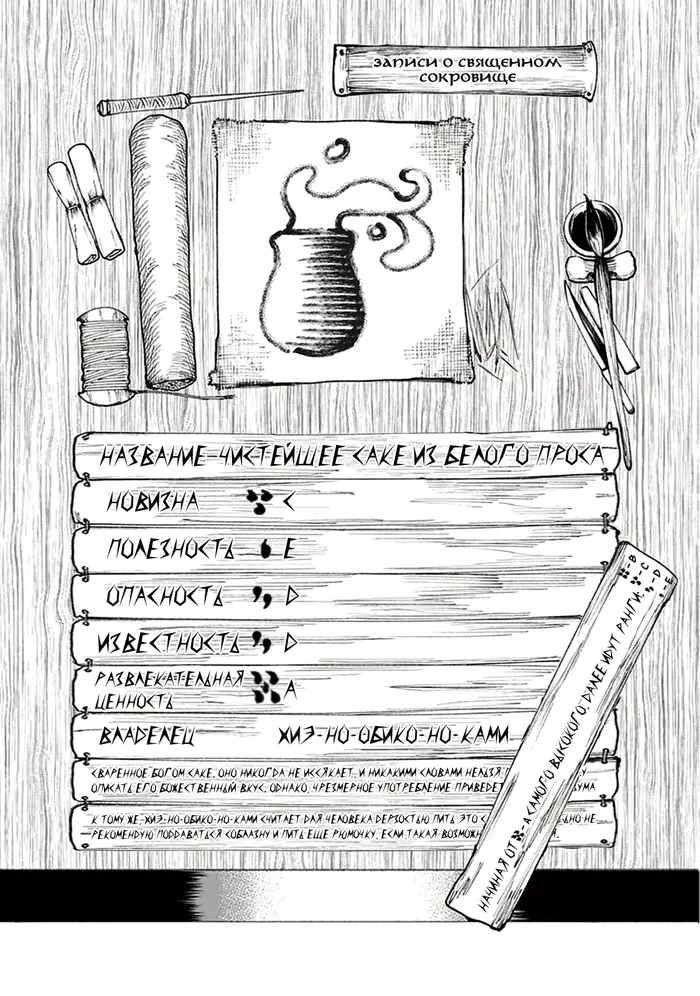 ЗАПИСИ О СВЯЩЕННОМ
СОКРОВИЩЕ
НАЗВАНИЕ ЧИСТЕЙШЕЕ САКЕ ИЗ БЕЛОГО ПРОСА
НОВИЗНА C
ПОЛЕЗНОСТЬ E
ОПАСНОСТЬ D
ИЗВЕСТНОСТЬ D
РАЗВЛЕКАТЕЛЬНАЯ
ЦЕННОСТЬ A
ВЛАДЕЛЕЦ ХИЭ-НО-ОБИКО-НО-КАМИ
СВАРЕННОЕ БОГОМ САКЕ. ОНО НИКОГДА НЕ ИССЯКАЕТ, И НИКАКИМИ СЛОВАМИ НЕЛЬЗЯ
ОПИСАТЬ ЕГО БОЖЕСТВЕННЫЙ ВКУС. ОДНАКО, ЧРЕЗМЕРНОЕ УПОТРЕБЛЕНИЕ ПРИВЕДЕТ
К ТОМУ ЖЕ, ХИЭ-НО-ОБИКО-НО-КАМИ СЧИТАЕТ ДЛЯ ЧЕЛОВЕКА ДЕРЗОСТЬЮ ПИТЬ ЭТО НЕ
РЕКОМЕНДУЮ ПОДДАВАТЬСЯ СОБЛАЗНУ И ПИТЬ ЕЩЕ РЮМОЧКУ, ЕСЛИ ТАКАЯ
НАЧИНАЯ ОТ -A САМОГО ВЫСОКОГО, ДАЛЕЕ ИДУТ РАНГИ:
-B
-C
-D
-E